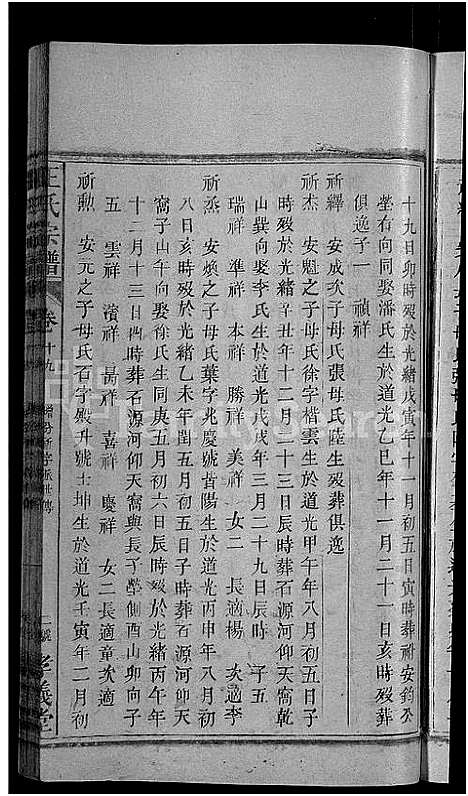 十九日卯時殁於光緒戊寅年十一月初五日寅時葬祔安鈞公
塋右向同娶潘氏生於道光乙巳年十一月二十一日亥時殁葬
俱逸子一 禎祥
祈釋 安成次子母氏張母氏陸生殁葬俱逸
祈杰 安魁之子母氏徐字楷雲生於道光甲午年八月初五日子
時殁於光緒辛丑年十二月二十三日辰時葬石源河仰天窩乾
山巽向娶李氏生於道光甲辰年三月二十九日辰時 子五
瑞祥 準祥 本祥 勝祥 美祥 女二 長適楊 次適李
祈烝 安煥之子母氏葉字兆慶號昔陽生於道光丙申年八月初
八日亥時殁於光緒乙未年閏五月初五日子時葬石源河仰天
窩子山午向娶徐氏生同庚五月初六日辰時殁於光緒丙午年
十二月十三日酉時葬石源河仰天窩與長子塋酉山卯向子
五 雲祥 濱祥 昜祥 喜祥 慶祥 女二長適童次適
祈勲 安元之子母氏石字殿升號士坤生於道光壬寅年二月初
王氏宗譜 卷十九
三槐 孝義堂